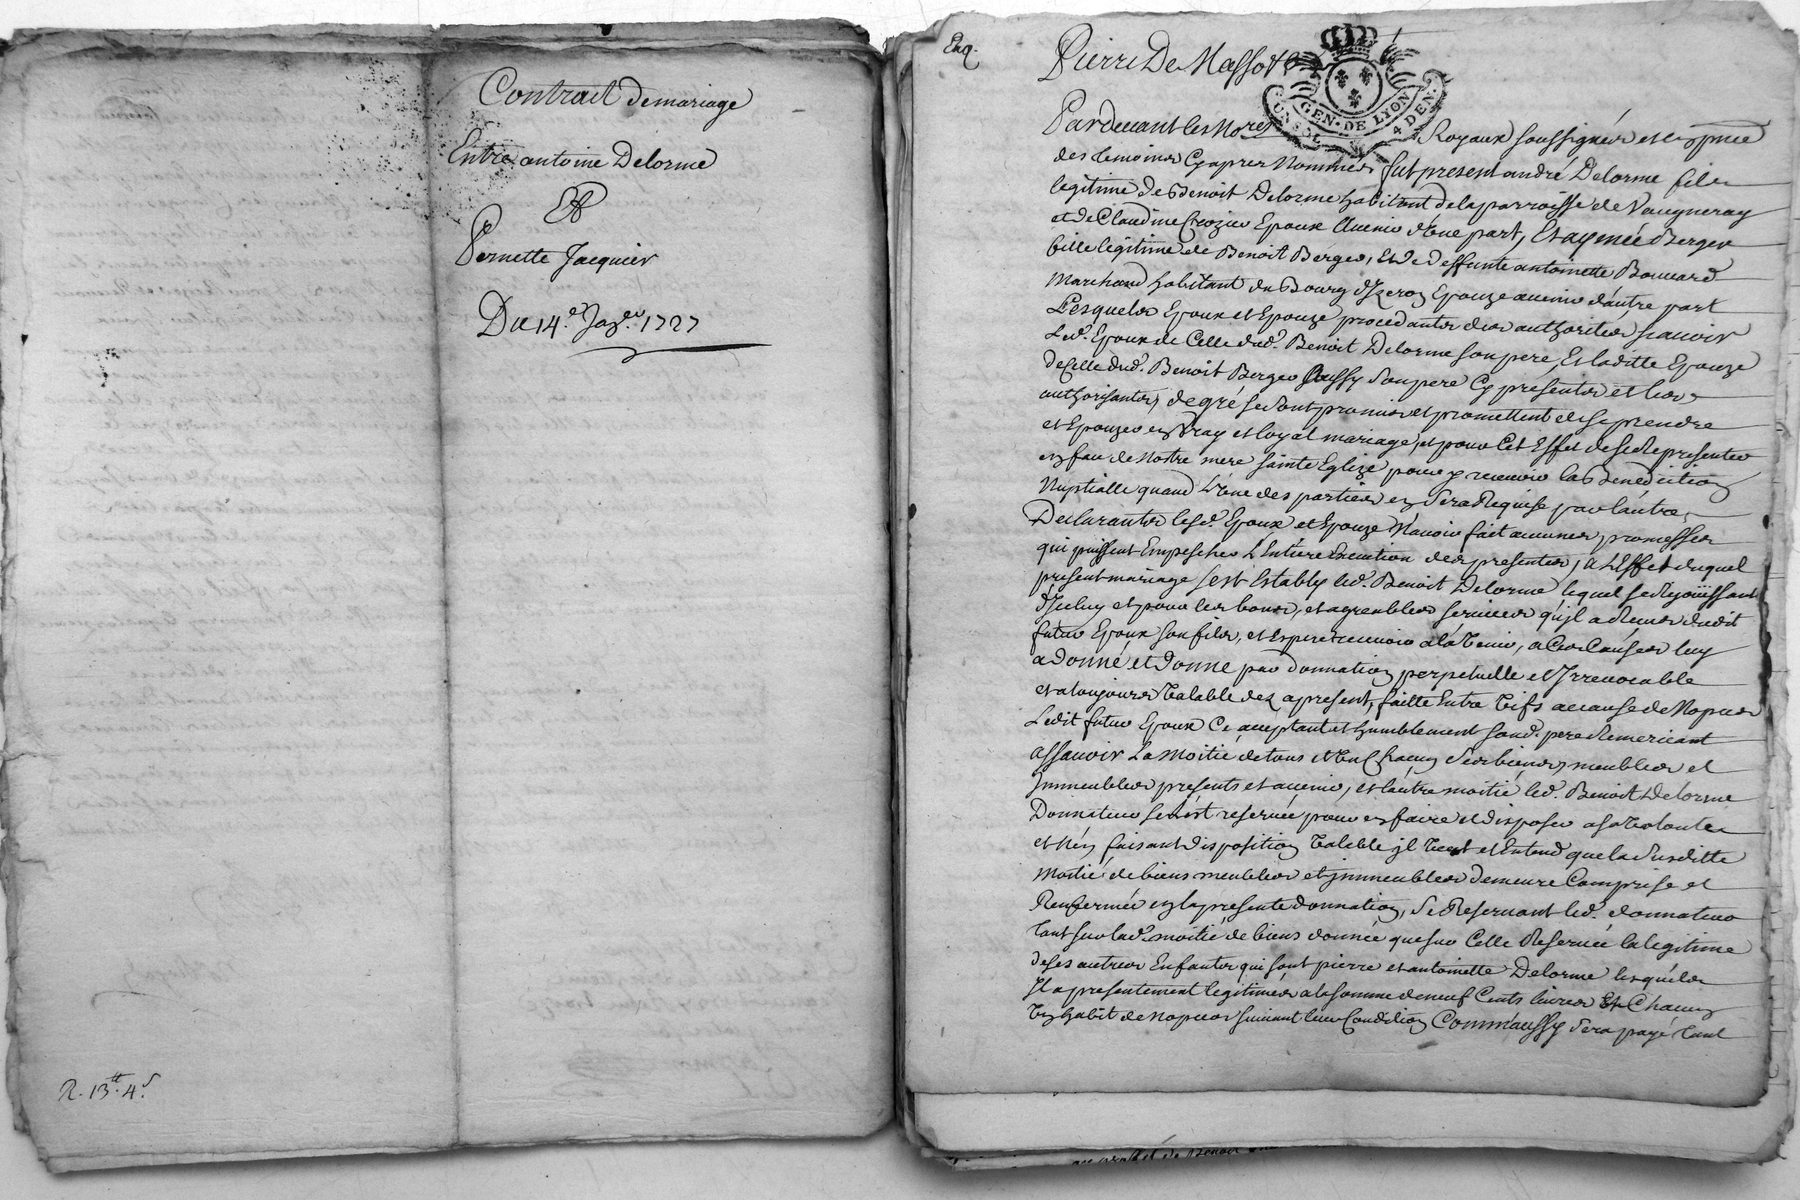 Contrait demariage
Entre antoine Delorme
Et
Pernette Jacquier
Du 14.e Jag.er 1727
R. 13tt. 4s
Enq.
Pierre De Masso
GEN. DE LYON
4 DEN.
Pardeuant les No.res Royaux soussignés et en pñce
des temoins Cyapres Nommés fut present andré Delorme fils
legitime de Benoit Delorme habitant de la parroisse de Vaugneray
et de Claudine Crozier Epoux Auenir d'une part, Et aymée Berger
fille legitime de Benoit Berger, Et de deffunte antoinette Bouuard
Marchand habitant du Bourg d'Izeron Epouze auenir d'autre part
Lesquels Epoux et Epouze procedants des authorités scauoir
Led. Epoux de Celle dud. Benoit Delorme son pere, Et laditte Epouze
de Celle dud. Benoit Berger Aussy son pere Cy presents et les
authorisants, de gré se sont promis et promettent de se prendre
et Epouzer en Vray et loyal mariage, et pour Cet Effet de se Representer
en face de Nostre mere sainte Eglize pour y receuoir la Benediction
Nuptialle quand L'une des parties en sera Requise par lautre,
Declarants lesd. Epoux et Epouze N'auoir fait aucunes promesses
qui puissent Empescher L'Entiere Execution des presentes, a L'Effet duquel
present mariage s'est Estably led. Benoit Delorme lequel se Rejouissant
d'Iceluy et pour les bons, et agreables seruices qu'jl a Receus dudit
futur Epoux son fils, et espere receuoir a la Venir, a Ces Causes luy
a donné et donne par donnation perpetuelle et Irreuocable
et a toujours Valable dez apresent, faitte Entre Vifs a cause de Nopces
Ledit futur Epoux Ce acceptant et humblement sond. pere Remerciant
assauoir La Moitié de tous et Un Chacun ses biens, meubles et
Immeubles presents et auenir, et lautre moitié led. Benoit Delorme
Donnateur se lest reseruée pour en faire et disposer a sa Volonté
et N'en faisant disposition Valable jl Veut et Entend que la susditte
Moitié de biens meubles et jmmeubles demeure Comprise et
Renfermée en la presente donnation, se Reseruant led. donnateur
tant sur lad. moitié de biens donnée que sur Celle Reseruée la legitime
de ses autres Enfants qui sont pierre et antoinette Delorme lesquels
Il a presentement legitimés a la somme de neuf Cents liures Et Chacun
Un habit de Nopces suiuant leur Condition Comm'aussy sera payé tant